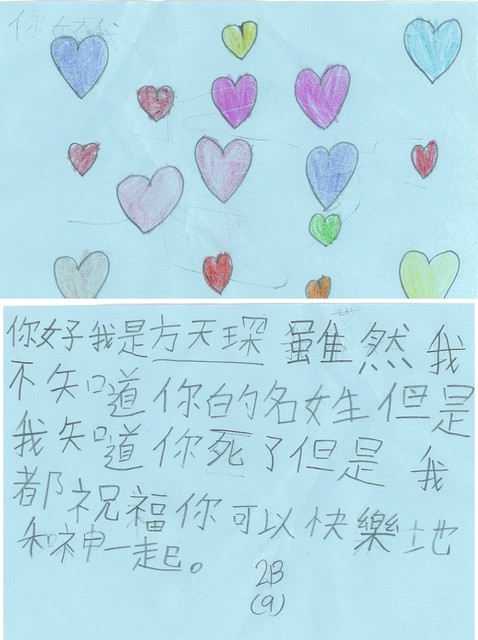 你好
你好我是方天琛 雖然我
不知道你的名姓但是
我知道你死了但是我
都祝福你可以快樂地
和神一起。
2B
(9)